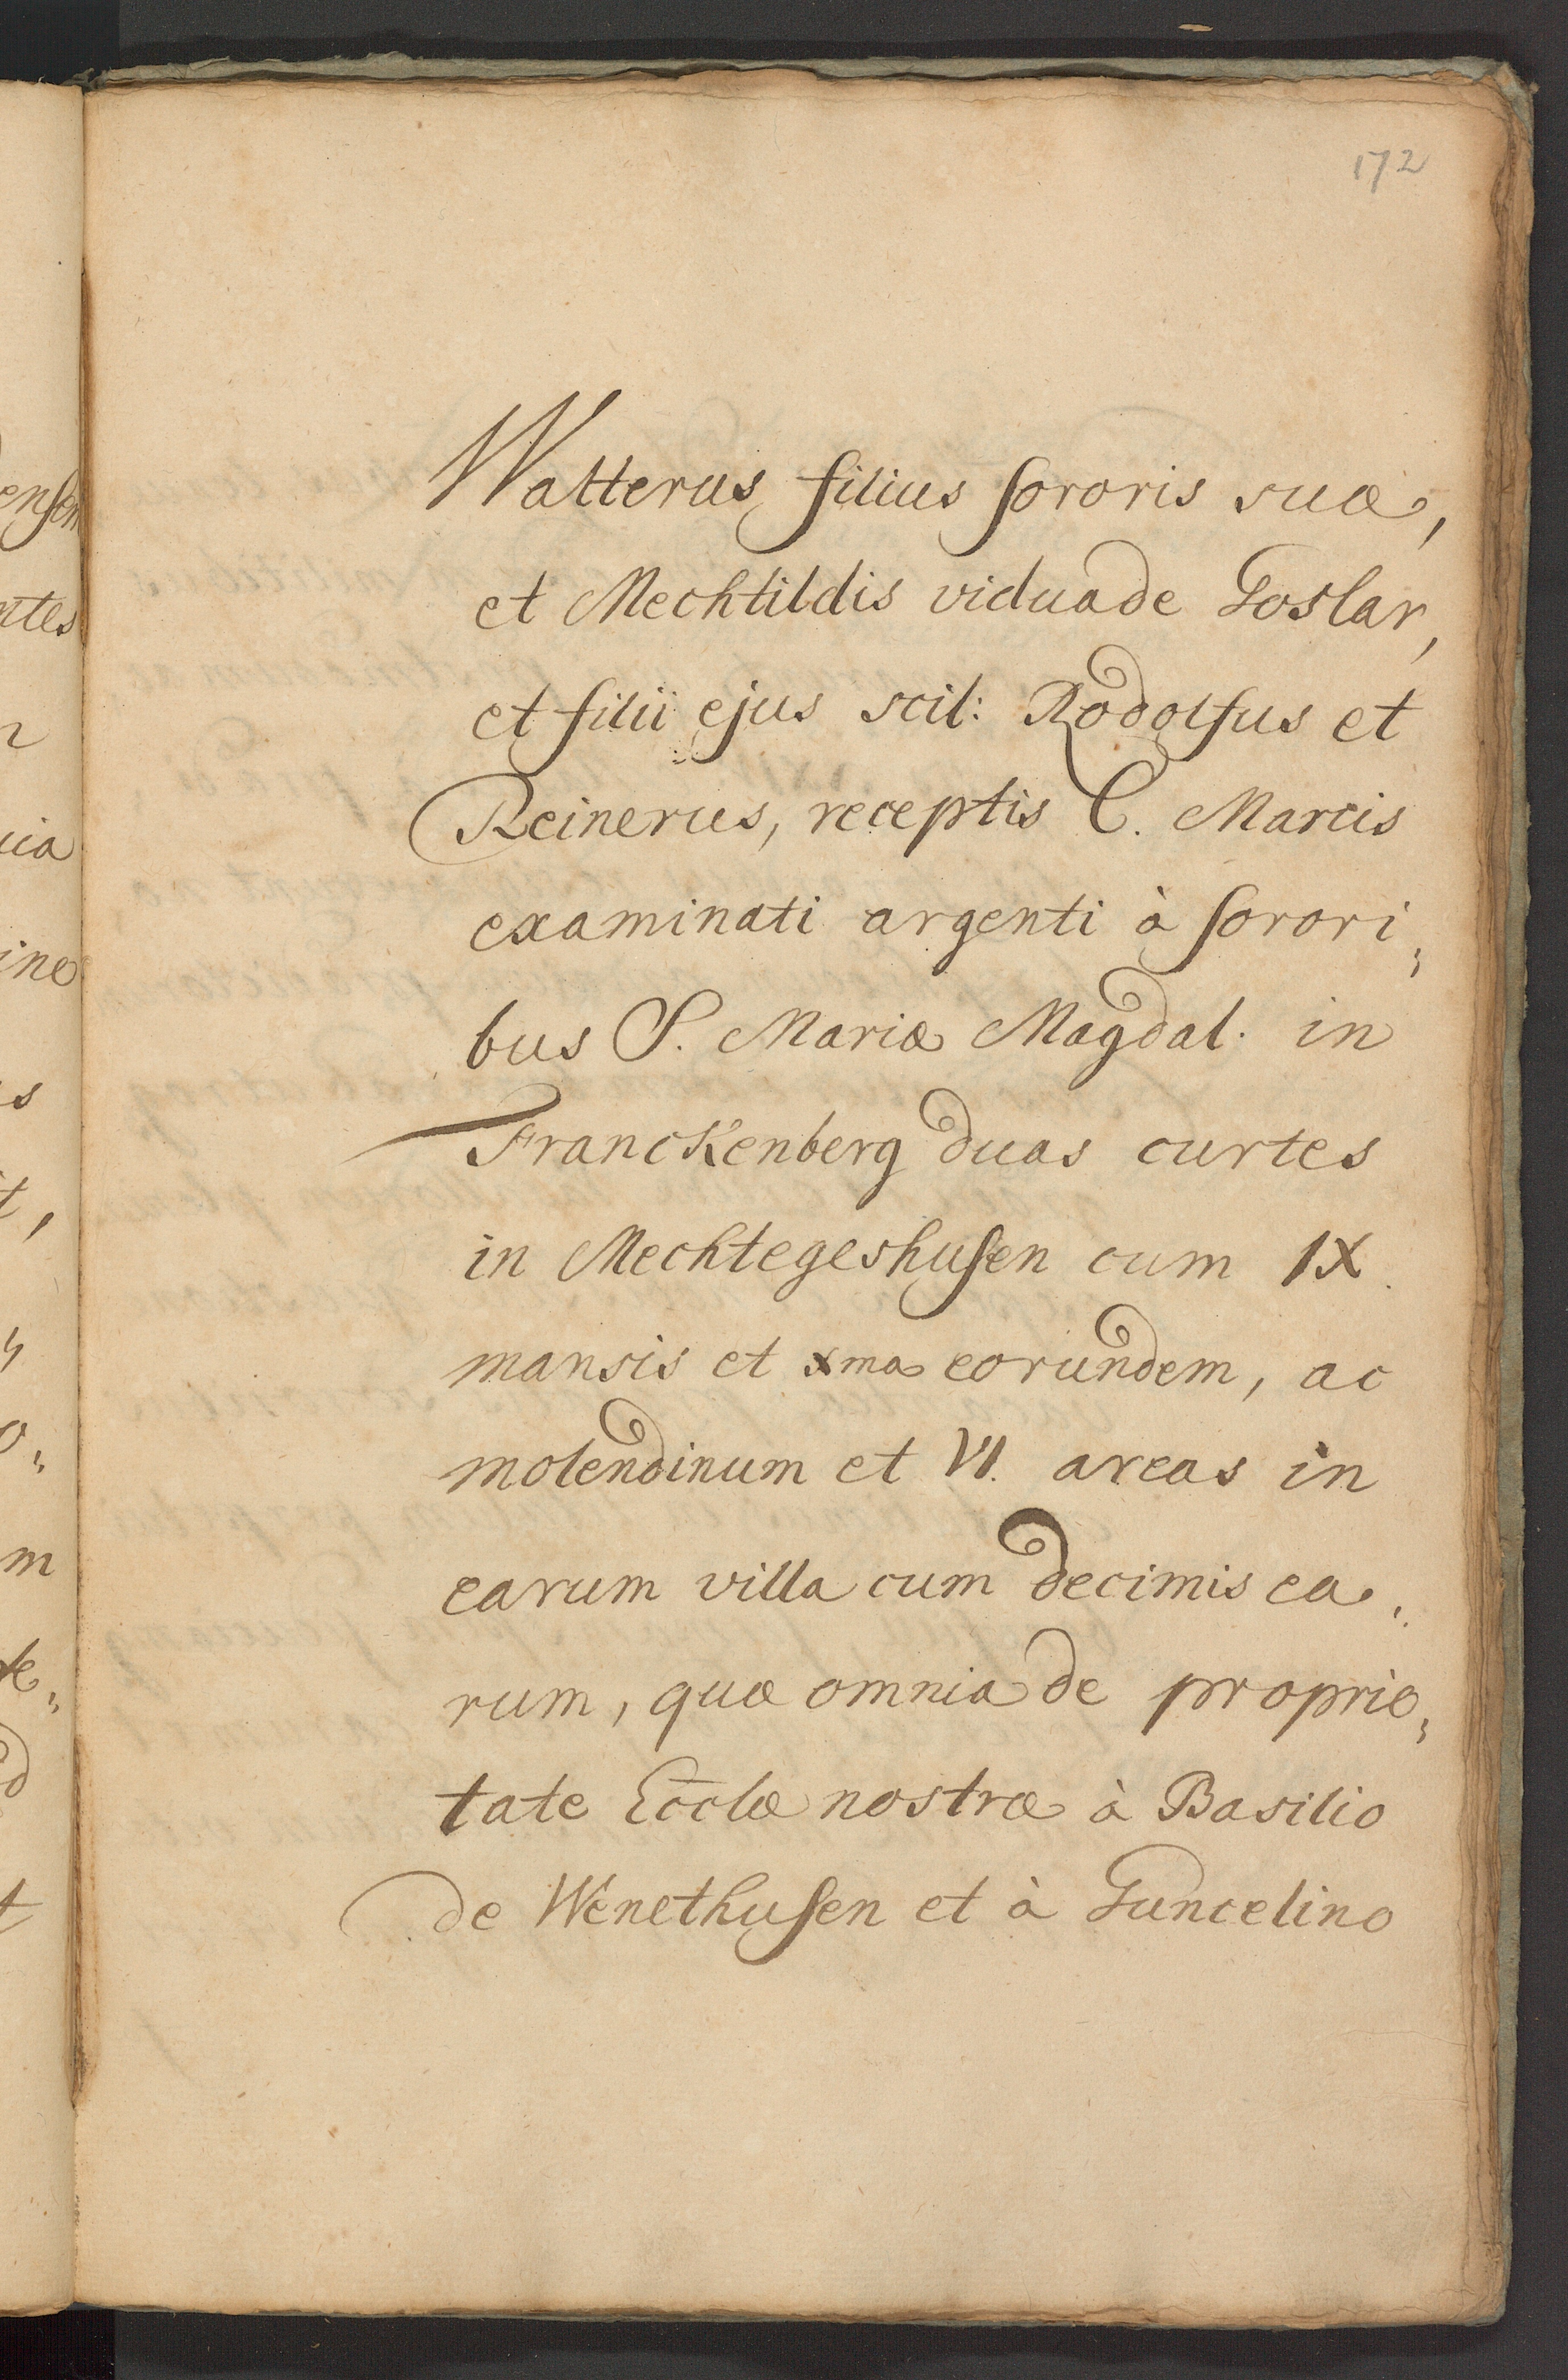 172
Walterus filius sororis suæ,
et Mechtildis vidua de Goslar,
et filii ejus scil: Rodolfus et
Reinerus, receptis C. Marcis
examinati argenti à sorori„
bus S. Mariæ Magdal. in
Franckenberg duas curtes
in Mechtegeshusen cum IX.
mansis et xma eorundem, ac
molendinum et VI. areas in
earum villa cum decimis ea„
rum, quæ omnia de proprie„
tate Eccl̄æ nostræ à Basilio
de Wenethusen et à Guncelino